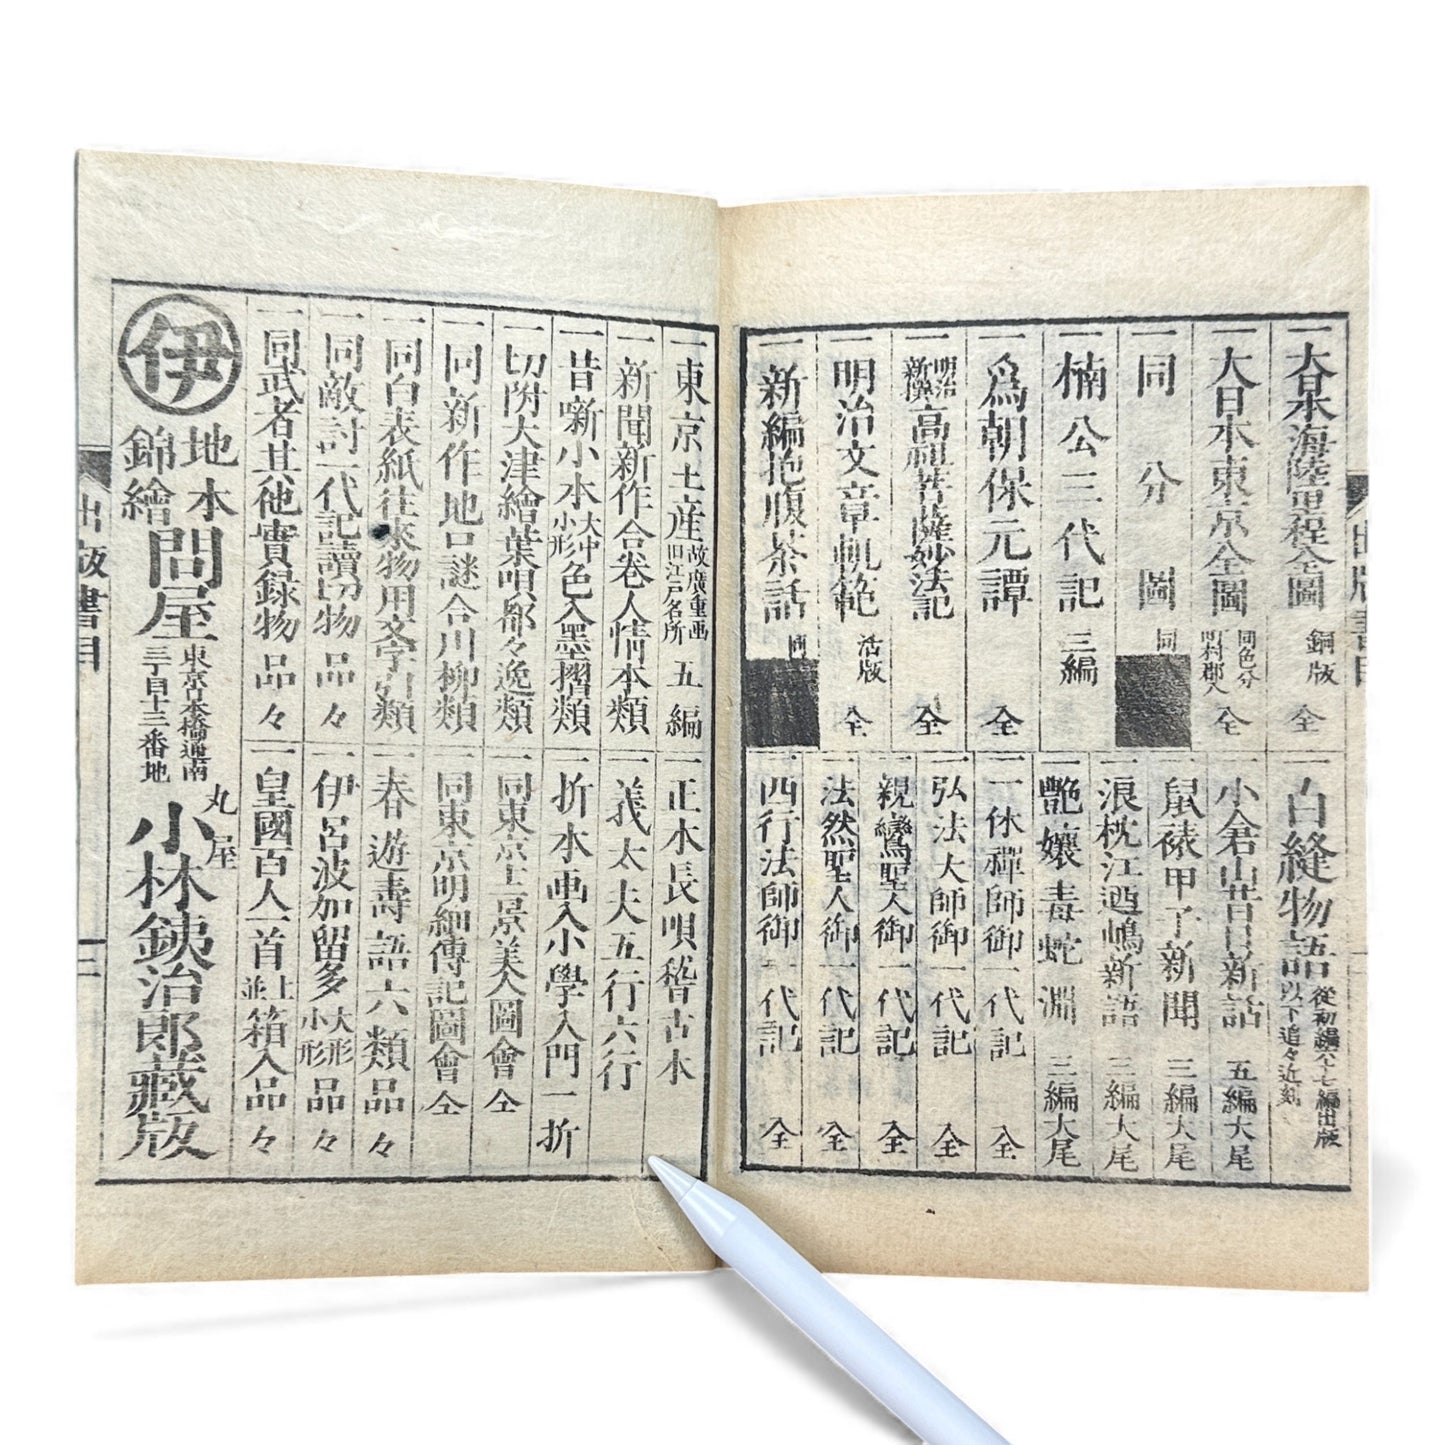 一大日本海陸里程全圖 銅版 全
一大日本東京全圖 同色分 明村郡入 全
一同分圖 同
一楠公三代記 三編
一為朝保元譚 全
明治新撰高祖菩薩妙法記 全
一明治文章軌範 活版 全
一新編抱腹茶話 同
一白縫物語 従初編六十七編出版 以下追々近刻
一小倉山昔日新話 五編大尾
一鼠裱甲子新聞 三編大尾
一浪枕江廼嶋新語 三編大尾
一艶孃毒蛇淵 三編大尾
一一休禪師御一代記 全
一弘法大師御一代記 全
一親鸞聖人御一代記 全
一法然聖人御一代記 全
一西行法師御一代記 全
出版書目
一東京土産 故廣重画 旧江戸名所 五編
一新聞新作合巻人情本類
一昔噺小本 大中小形 色入墨摺類
一切附大津繪葉唄都々逸類
一同新作地口謎合川柳類
一同白表紙往来物用文字引類
一同敵討一代記讀切物品々
一同武者其他實録物品々
一正本長唄稽古本
一義太夫五行六行
一折本画入小學入門一折
一同東京三十景美人圖會 全
一同東京明細傳記圖會 全
一春遊壽語六類品々
一伊呂波加留多 大形小形 品々
一皇國百人一首 並上 箱入品々
伊
地本
錦繪
問屋
東京日本橋通南
三丁目十三番地
丸屋
小林鉄治郎藏版
出版書目
二